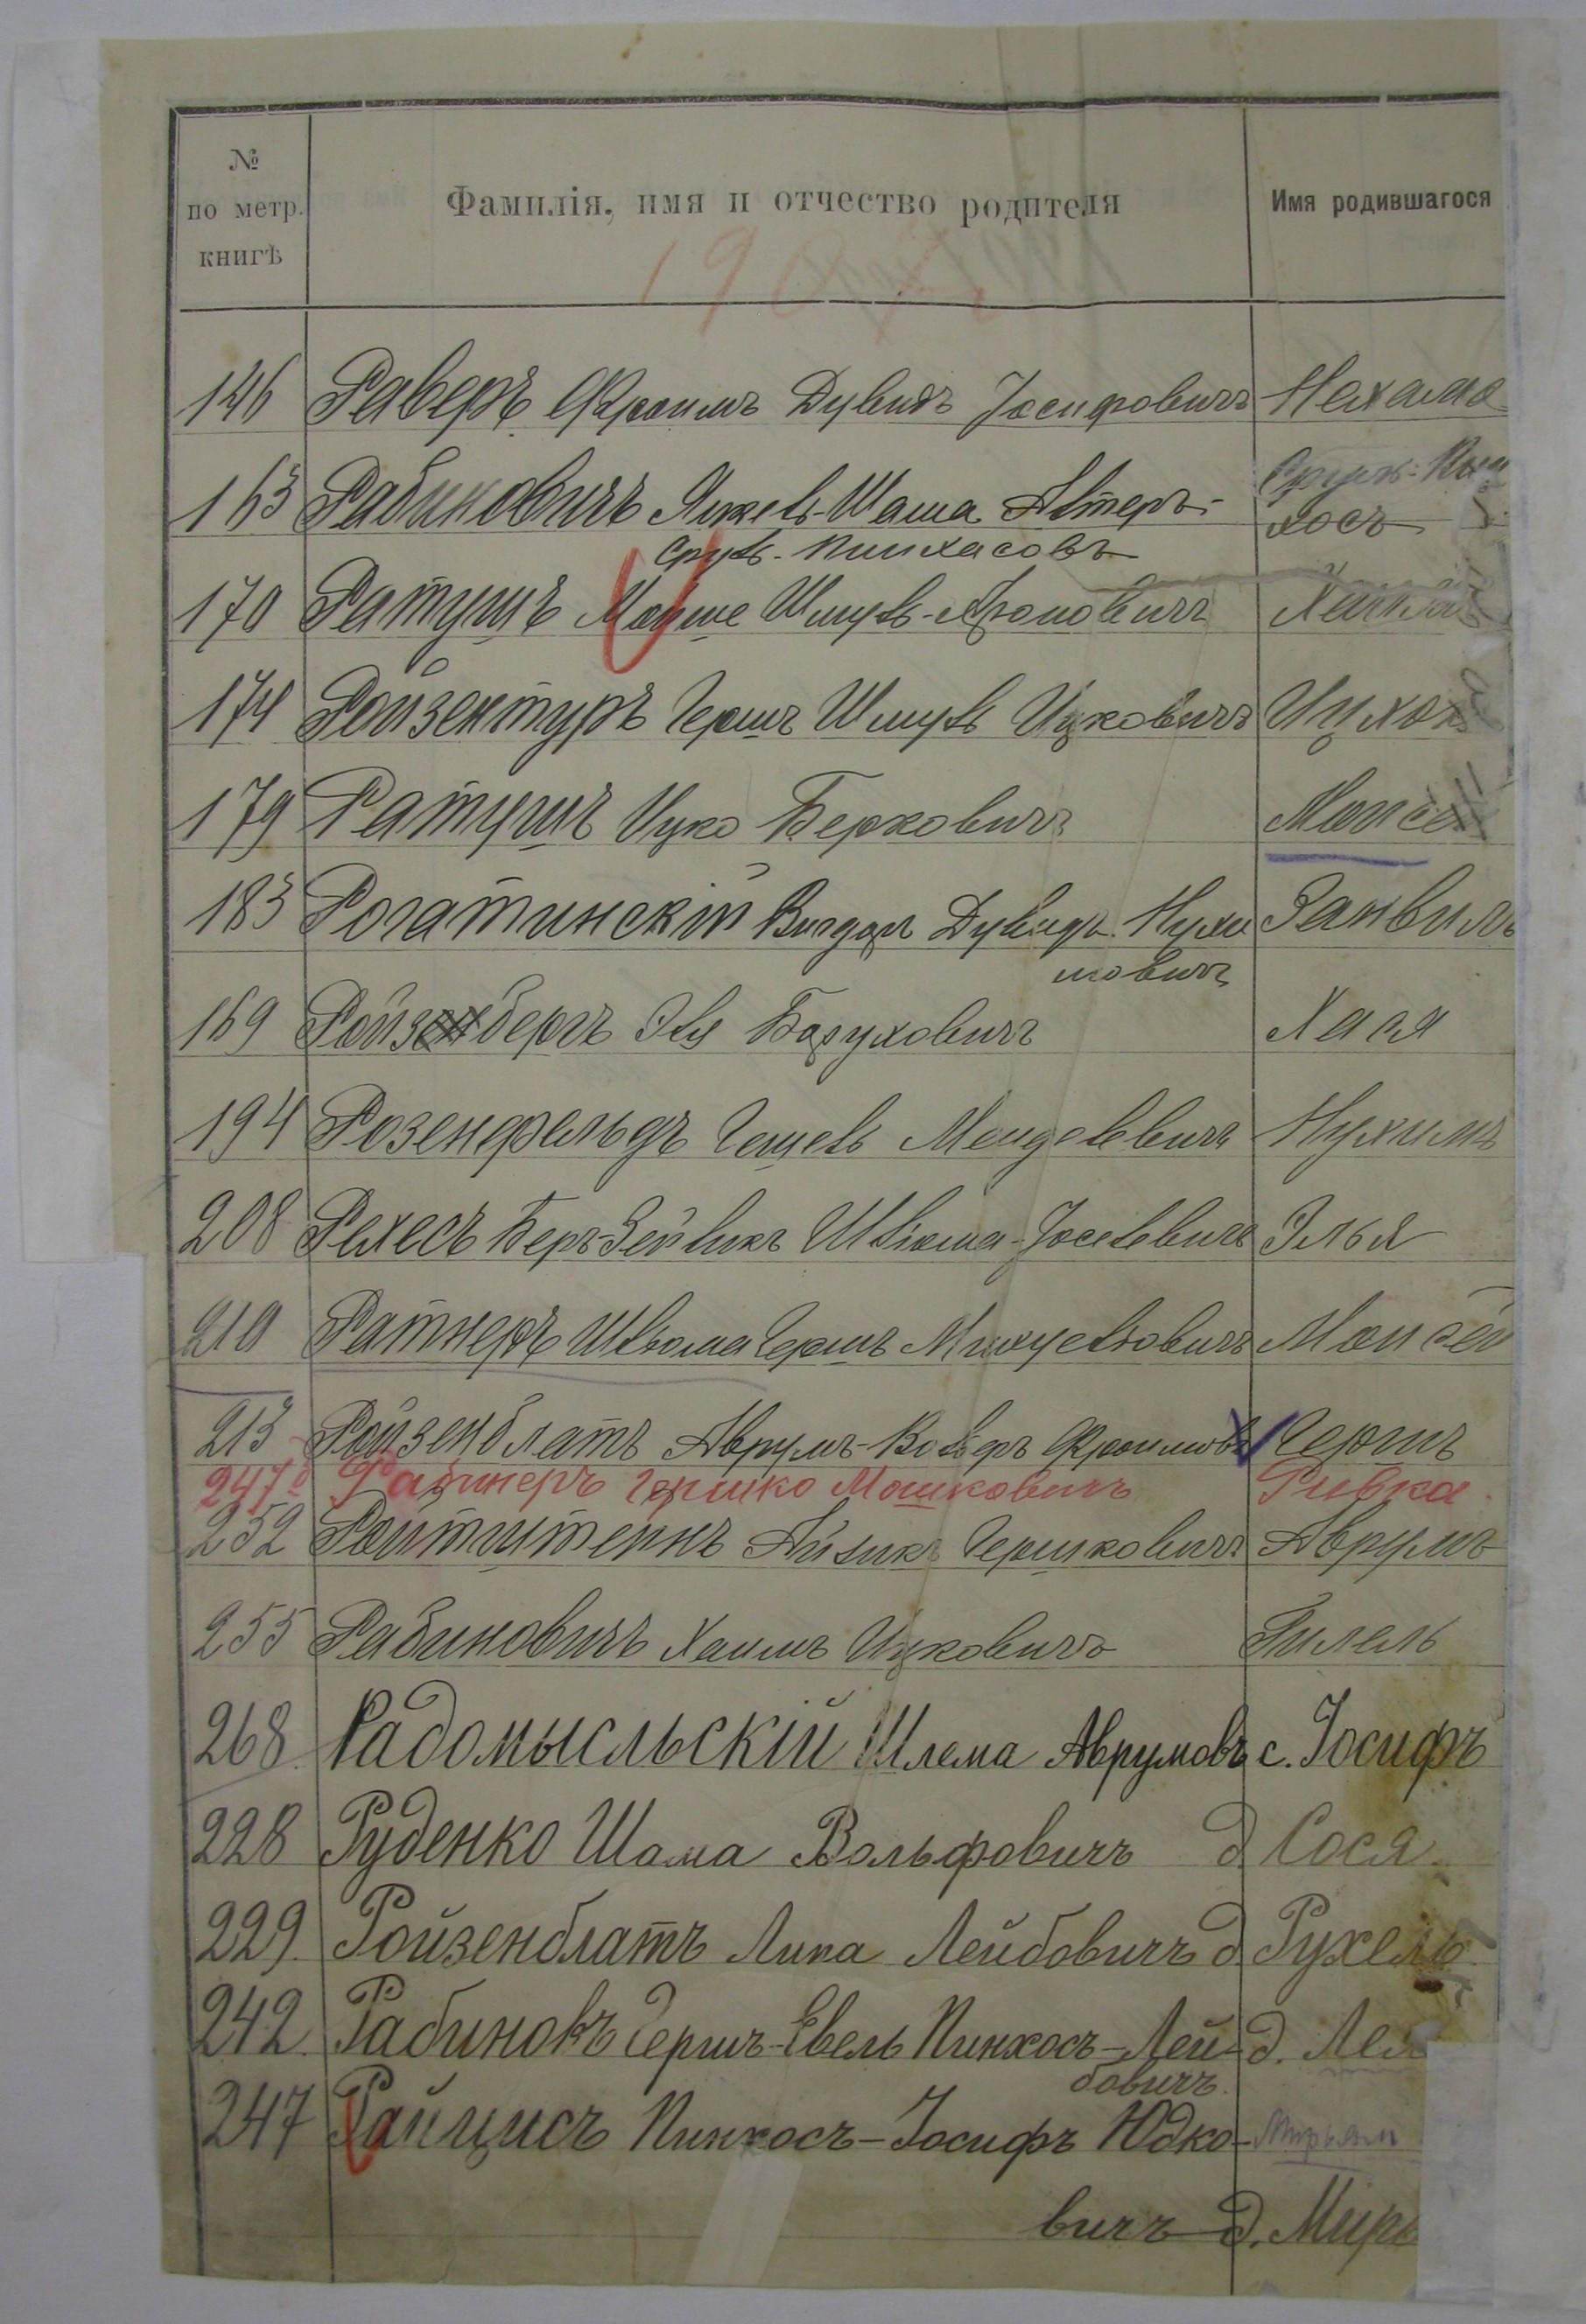 №
по метр.
книгѣ
Фамилія, имя и отчество родителя
Имя родившагося
1907
146 Раверъ Фроимъ Дувидъ Іосифовичъ Нехама
163 Рабиновичъ Янкель-Шама Алтеръ-
Сруль-Пинхасовъ хосъ
170 Ратушъ Мойше Шмуль-Ароновичъ
174 Ройзентуръ Гершъ Шмуль Ицковичъ Ицхок
179 Ратушъ Ицко Берковичъ Моисей
183 Рогатинскій Вигдор Дувидъ Нухи Занвиль
мовичъ
169 Ройзбергъ Эля Боруховичъ Хася
194 Розенфельдъ Гецель Менделевичъ Нухимъ
208 Рехесъ Беръ-Зейвикъ Шлiома-Іоселевичъ Элья
210 Ратнеръ Шльома Гершъ Михуельовичъ Моисей
213 Ройзенблатъ Аврумъ-Вольфъ Фроимовъ Гершъ
247 Гершко Мошковичъ Ривка.
252 Ройтштейнъ Айзикъ Гершковичъ Аврумъ
255 Рабиновичъ Хаимъ Ицковичъ Гилель
268 Радомысльскій Шлема Аврумовъ с. Іосифъ
228 Руденко Шама Вольфовичъ д. Сося
229. Ройзенблатъ Липа Лейбовичъ д. Рухель
242. Рабинокъ Гершъ-Евель Пинхосъ-Лей- д. Лея
бовичъ.
247 Райцисъ Пинхосъ-Іосифъ Юдко- Мирьям
вичъ д. Мирь